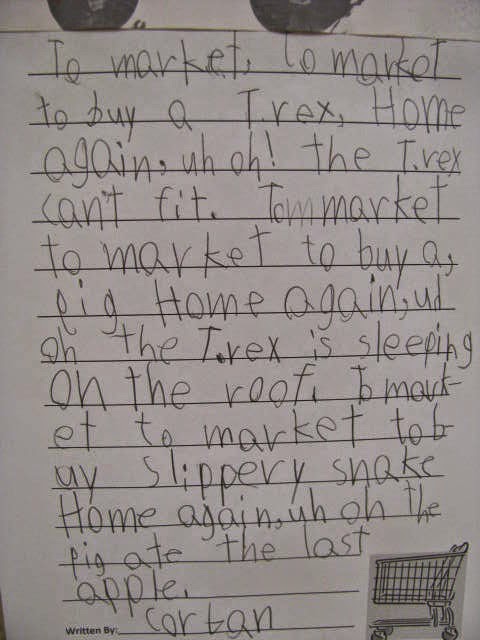 To market, To market
to buy a T.rex, Home
again, uh oh! the T.rex
can't fit. Tommarket
to market to buy a,
pig Home again, uh
oh the T.rex is sleeping
On the roof. To mark-
et to market to b-
uy slippery snake
Home again, uh oh the
pig ate the last
apple.
Written By: Cortan